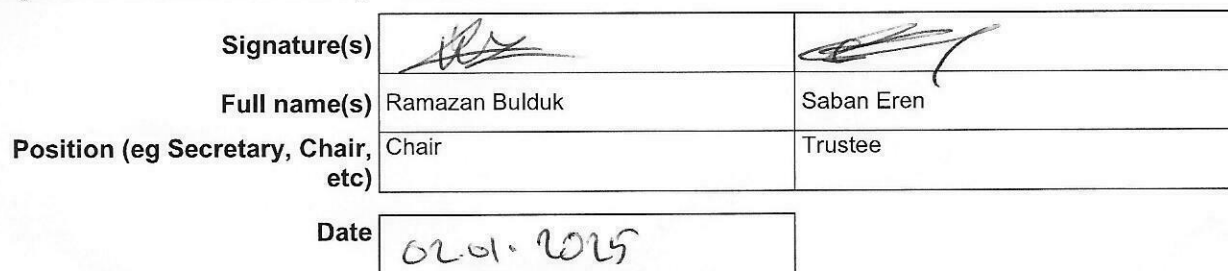 Signature(s)
Full name(s) Ramazan Bulduk Saban Eren
Position (eg Secretary, Chair, Chair Trustee
etc)
Date 02.01.2025